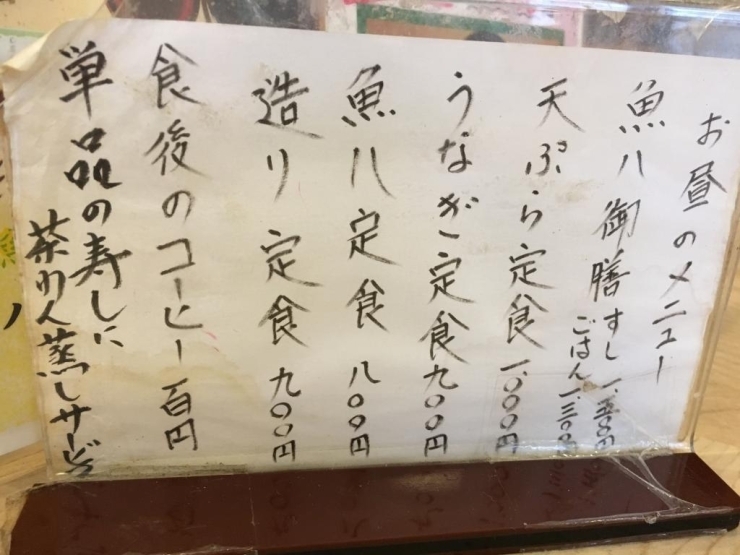 お昼のメニュー
魚八御膳 すし 一、五〇〇円
ごはん 一、三〇〇円
天ぷら定食 一、〇〇〇円
うなぎ定食 九〇〇円
魚八定食 八〇〇円
造り定食 九〇〇円
食後のコーヒー 百円
単品の寿しに
茶わん蒸しサービス